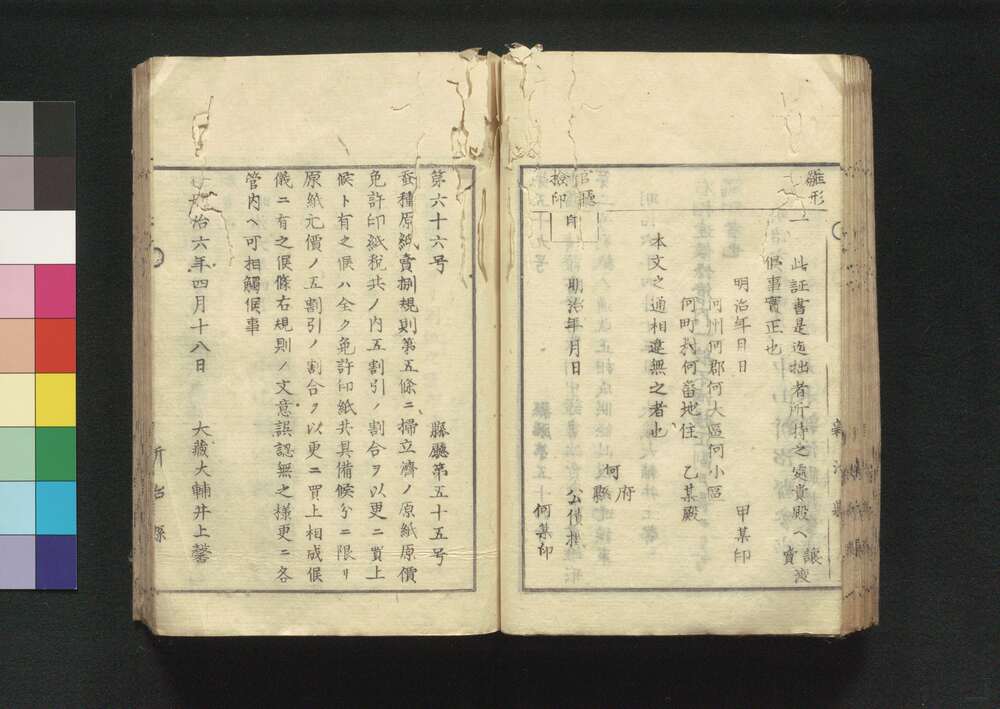 雛形
一 此証書是迄拙者所持之處貴殿ヘ賣讓渡
候事實正也
明治年月日 甲某印
何州何郡何大區何小區
何町村何番地住 乙某殿
本文之通相違無之者也
何府縣
明治年月日 公債掛
何某印
官廳
検印
印
第六十六号 縣廳第五十五号
蚕種原紙賣捌規則第五條ニ掃立濟ノ原紙原價
免許印紙税共ノ内五割引ノ割合ヲ以更ニ買上
候ト有之候ハ全ク免許印紙共具備候分ニ限リ
原紙元價ノ五割引ノ割合ヲ以更ニ買上相成候
儀ニ有之候條右規則ノ文意誤認無之様更ニ各
管内ヘ可相觸候事
明治六年四月十八日 大藏大輔井上馨